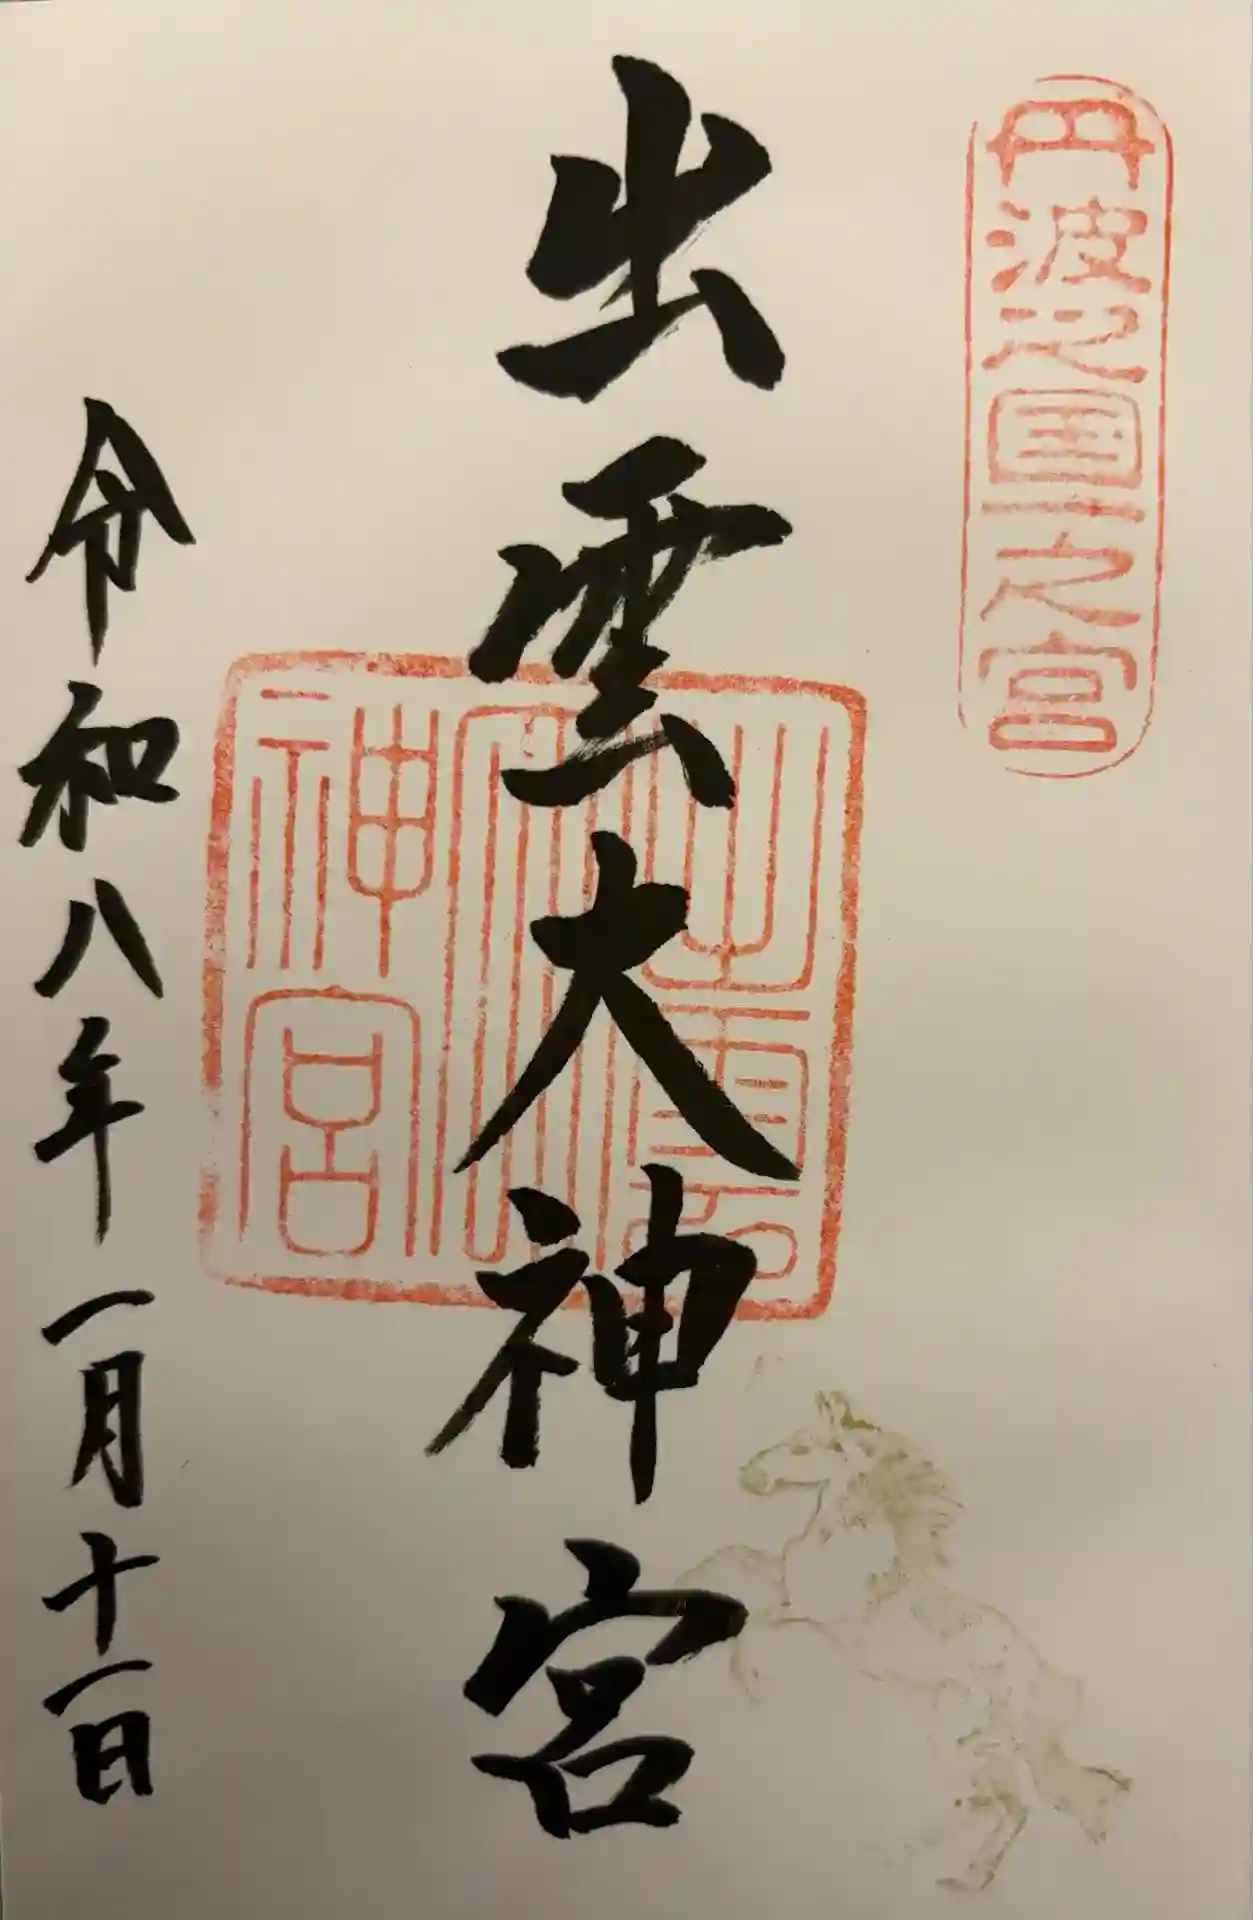 丹波之国一之宮
出雲大神宮
出雲大神宮
令和八年一月十一日